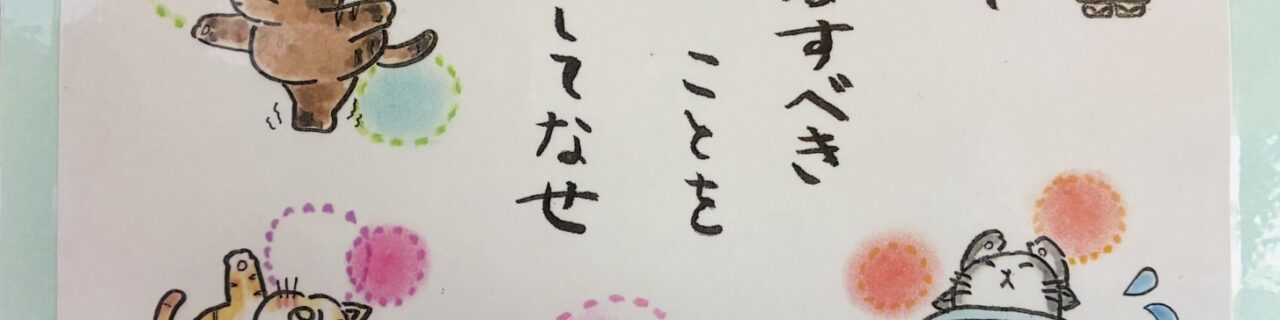 すべき
ことを
してなせ